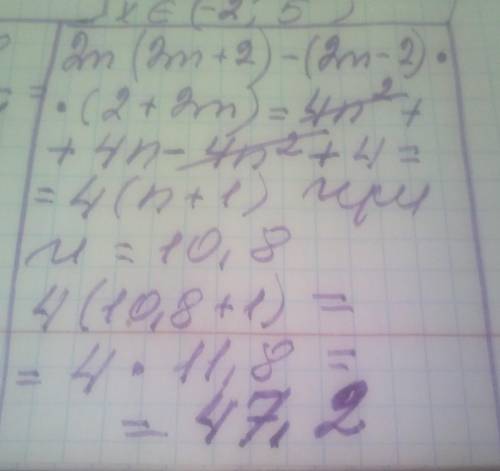 x ∈ (-2; 5)
2n (2n+2) - (2n-2) •
• (2 + 2n) = 4n² +
+ 4n - 4n² + 4 =
= 4 (n+1) при
n = 10,8
4 (10,8+1) =
= 4 • 11,8 =
= 47,2